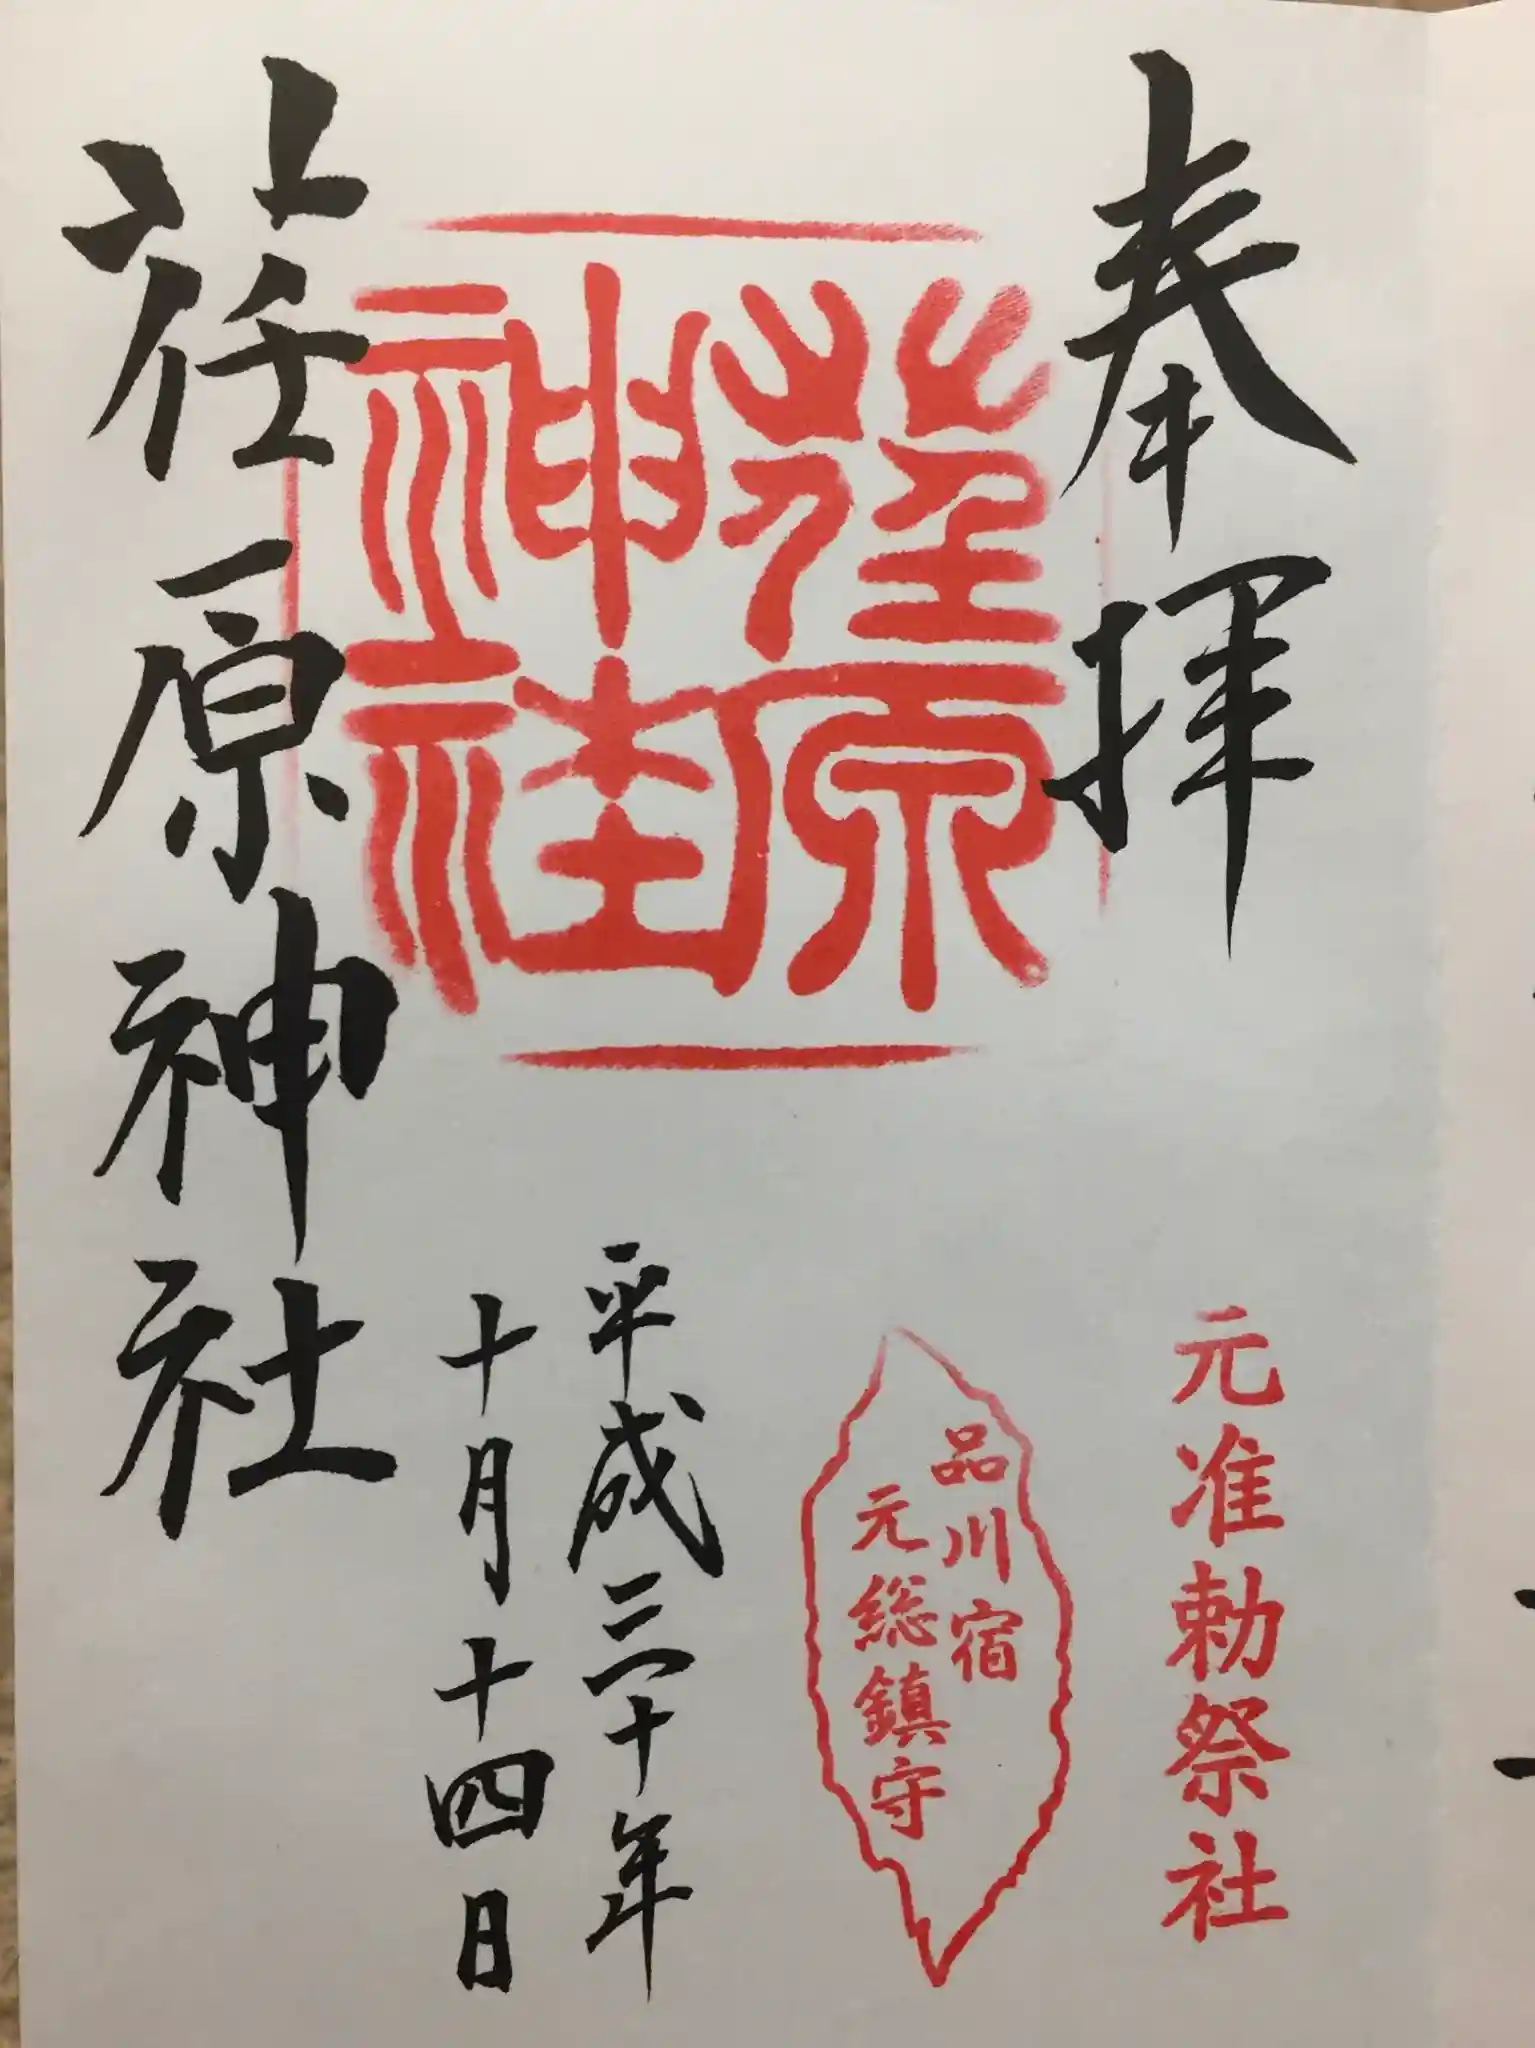 奉拝
元准勅祭社
荏原
神社
品川宿
元総鎮守
平成三十年
十月十四日
荏原神社